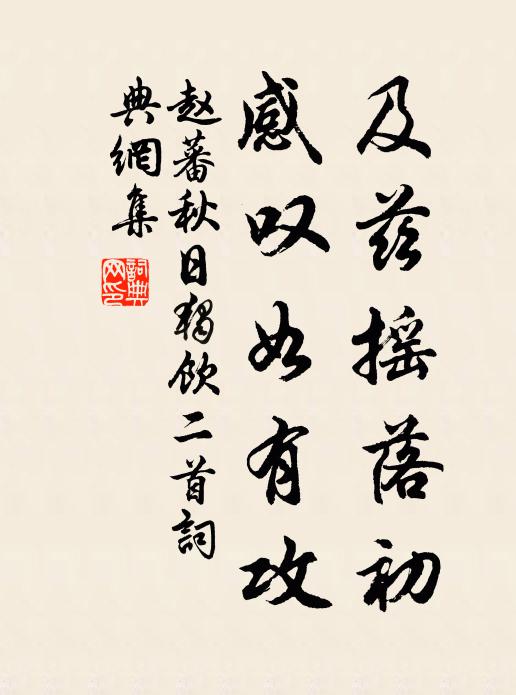 及兹摇落初
感叹如有攻
赵蕃秋日独饮二首詞
典網集
詞典
网印